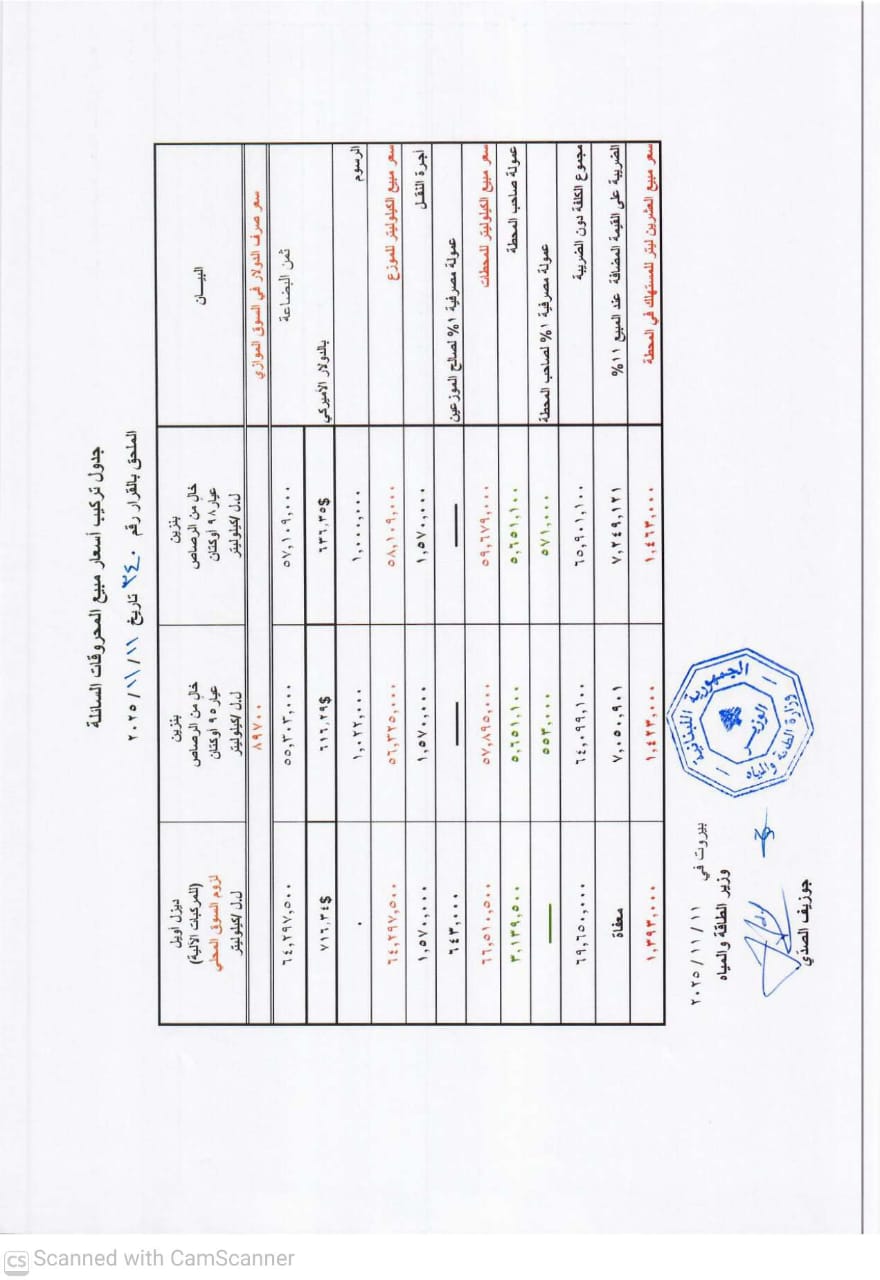 جدول تركيب أسعار مبيع المحروقات السائلة
الملحق بالقرار رقم ٣٤٠ تاريخ ١١/١١/٢٠٢٥
البيان
بنزين
خالٍ من الرصاص
عيار ٩٨ أوكتان
ل.ل/كيلوليتر
بنزين
خالٍ من الرصاص
عيار ٩٥ أوكتان
ل.ل/كيلوليتر
ديزل أويل
(للمركبات الآلية)
لزوم السوق المحلي
ل.ل/كيلوليتر
سعر صرف الدولار في السوق الموازي ٨٩٧٠٠
ثمن البضاعة ٥٧,١٠٩,٠٠٠ ٥٥,٣٠٣,٠٠٠ ٦٤,٢٩٧,٥٠٠
بالدولار الأميركي ٦٣٦,٣٥$ ٦١٦,٢٩$ ٧١٦,٣٤$
الرسوم ١,٠٠٠,٠٠٠ ١,٠٢٢,٠٠٠ ٠
سعر مبيع الكيلوليتر للموزع ٥٨,١٠٩,٠٠٠ ٥٦,٣٢٥,٠٠٠ ٦٤,٢٩٧,٥٠٠
أجرة النقل ١,٥٧٠,٠٠٠ ١,٥٧٠,٠٠٠ ١,٥٧٠,٠٠٠
عمولة مصرفية ١% لصالح الموزعين — — ٦٤٣,٠٠٠
سعر مبيع الكيلوليتر للمحطات ٥٩,٦٧٩,٠٠٠ ٥٧,٨٩٥,٠٠٠ ٦٦,٥١٠,٥٠٠
عمولة صاحب المحطة ٥,٦٥١,١٠٠ ٥,٦٥١,١٠٠ ٣,١٣٩,٥٠٠
عمولة مصرفية ١% لصاحب المحطة ٥٧١,٠٠٠ ٥٥٣,٠٠٠ —
مجموع الكلفة دون الضريبة ٦٥,٩٠١,١٠٠ ٦٤,٠٩٩,١٠٠ ٦٩,٦٥٠,٠٠٠
الضريبة على القيمة المضافة عند المبيع ١١% ٧,٢٤٩,١٢١ ٧,٠٥٠,٩٠١ معفاة
سعر مبيع العشرين ليتر للمستهلك في المحطة ١,٤٦٣,٠٠٠ ١,٤٢٣,٠٠٠ ١,٣٩٣,٠٠٠
بيروت في ١١/١١/٢٠٢٥
وزير الطاقة والمياه
جوزيف الصدّي
الجمهورية اللبنانية
وزارة الطاقة والمياه
الوزير
CS Scanned with CamScanner